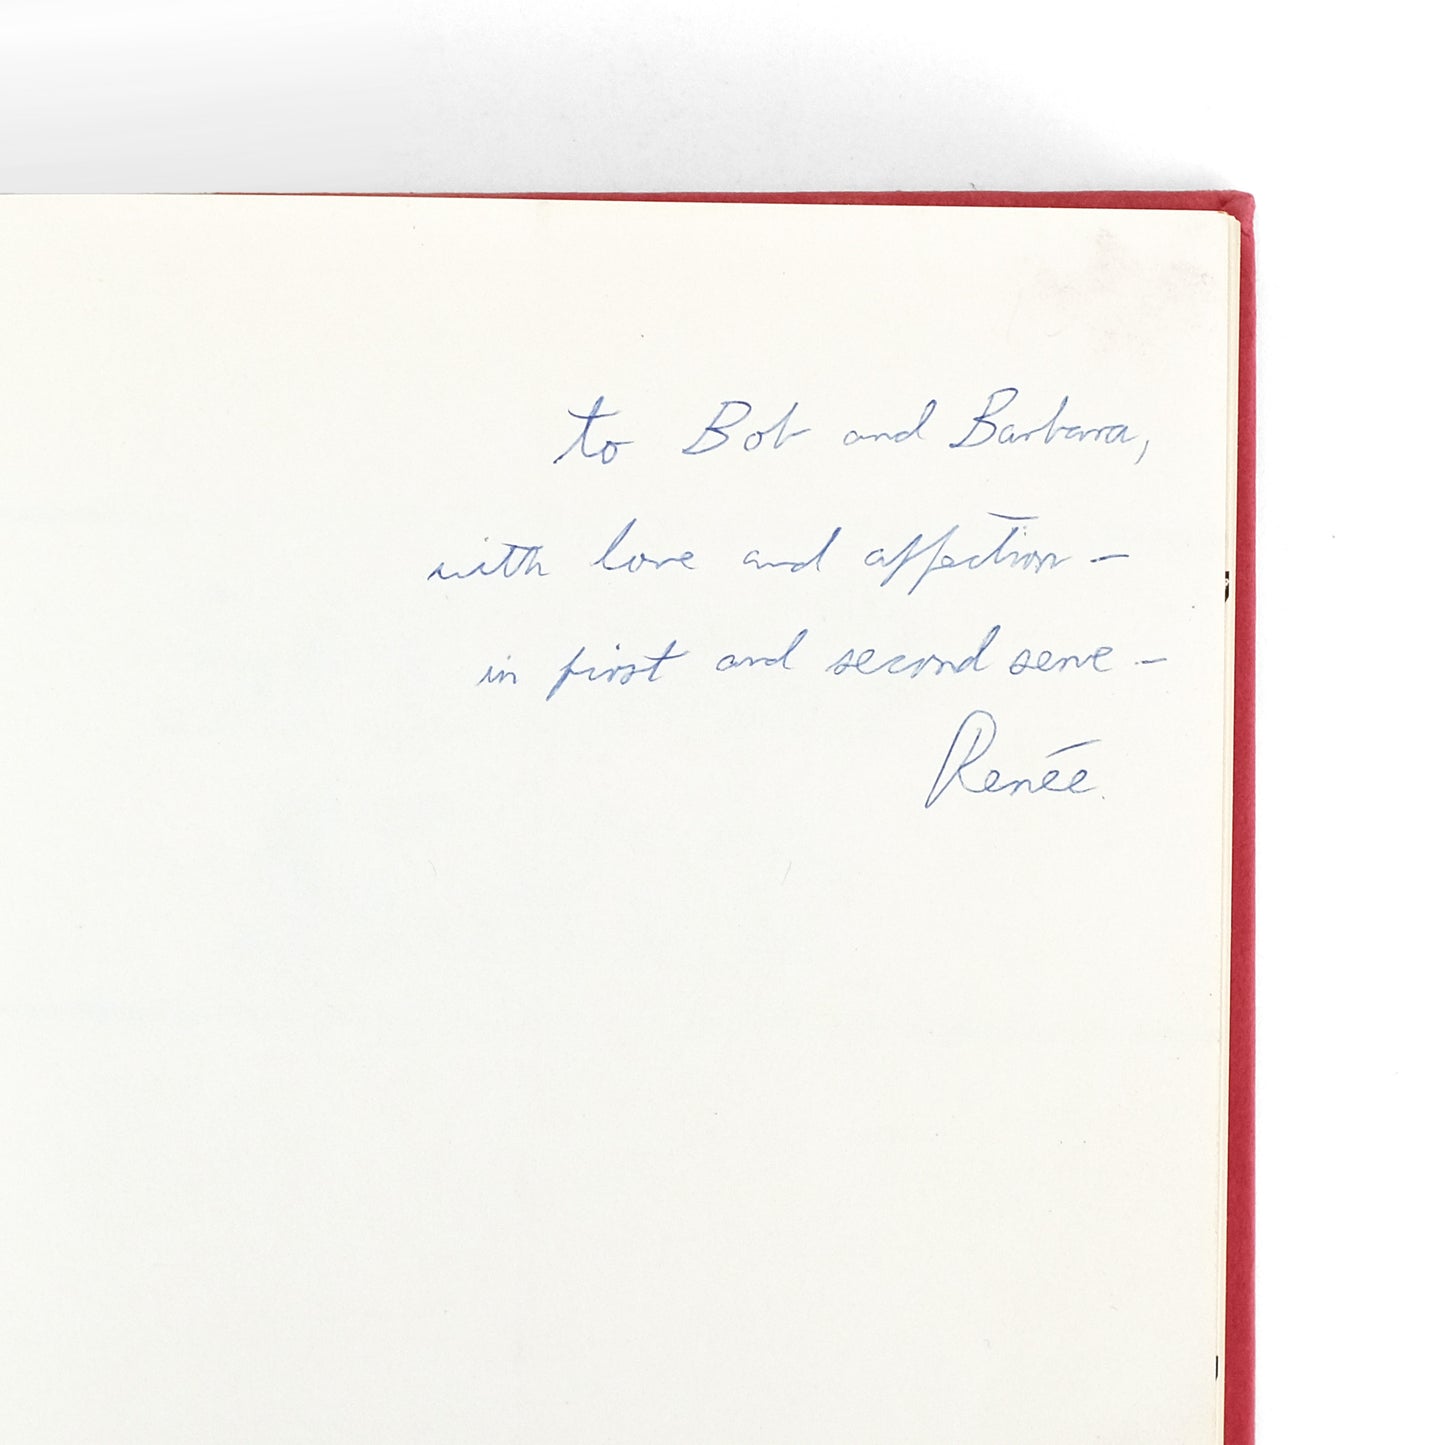 to Bob and Barbara,
with love and affection –
in first and second serve –
Renée.